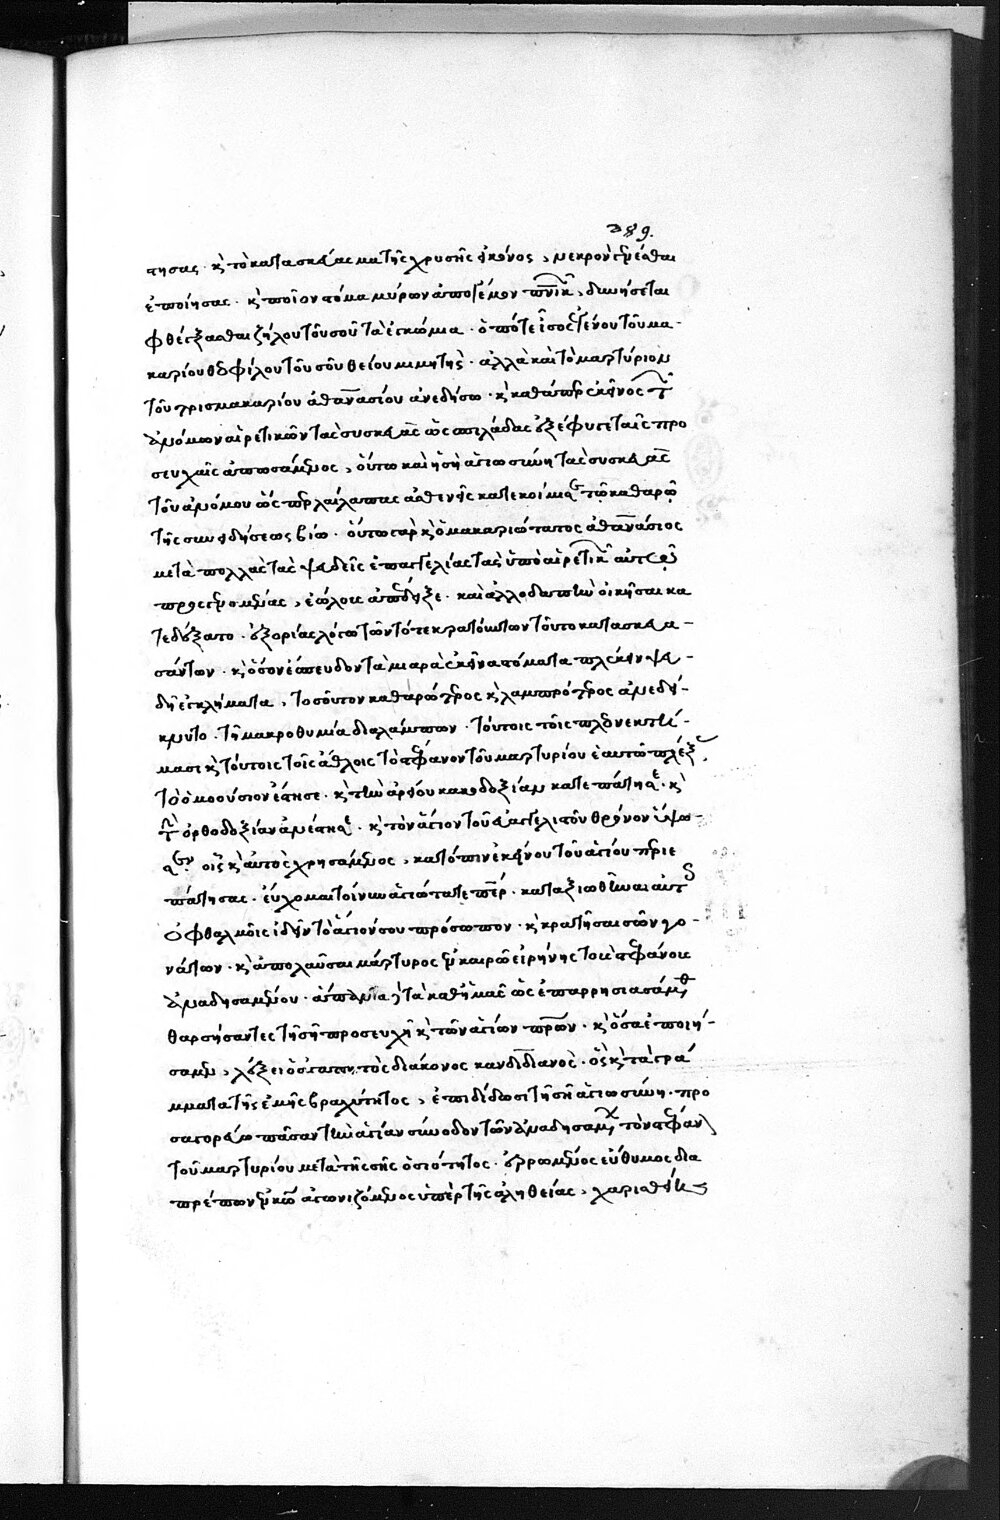 289.
τησας · κ̀ τὸ κατασκεύασμα τῆς χρυσῆς εἰκόνος, νεκρὸν ἐρρίφθαι
ἐποίησας · κ̀ ποῖον στόμα μύρων ἀποζέμον πν̅ικῶν, διηγήσεται
φθέγξασθαι ζήλου τοῦ σοῦ τὰ ἐγκώμια · ὁπότε ἴσος γένου τοῦ μα-
καρίου θεοφίλου τοῦ σοῦ θείου μιμητής · ἀλλὰ καὶ τὸ μαρτύριον
τοῦ τρισμακαρίου ἀθανασίου ἀνεδήσω · κ̀ καθάπερ ἐκεῖνος τῶν
ἀνόμων αἱρετικῶν τὰς συσκευὰς ὡς σπιλάδας ἐξέφυγε ταῖς προ
σευχαῖς ἀπωσάμενος, οὕτω καὶ ἡ σὴ ἁγιωσύνη τὰς συσκευὰς
τοῦ ἀνόμου ὡς περ λαίλαπας ἀσθενεῖς κατεκοίμισεν τῷ καθαρῷ
τῆς συνειδήσεως βίῳ · οὕτω γὰρ κ̀ ὁ μακαριώτατος ἀθανάσιος
μετὰ πολλὰς τὰς ψευδεῖς ἐπαγγελίας τὰς ὑπὸ αἱρετικῶν αὐτῷ
προσενομένας, ἑώλους ἀπέδειξε · καὶ ἀλλοδαπὴν οἰκῆσαι κα
τεδέξατο · ἐξορίας λόγῳ τῶν τότε κρατούντων τοῦτο κατασκευα-
σάντων · κ̀ ὅσον ἔσπευδον τὰ μιαρὰ ἐκεῖνα στόματα πλέκειν ψευ-
δῆ ἐγκλήματα, τοσοῦτον καθαρώτερος κ̀ λαμπρότερος ἀνεδεί-
κνυτο · τῇ μακροθυμίᾳ διαλάμπων · τούτοις τοῖς πλεονεκτή-
μασι κ̀ τούτοις τοῖς ἄθλοις τὸ στέφανον τοῦ μαρτυρίου ἑαυτῷ πλέξας,
τὸ ὁμοούσιον ἔστησε · κ̀ τὴν ἀρείου κακοδοξίαν κατεπάτησε · κ̀
τὴν ὀρθοδοξίαν ἀνέστησε · κ̀ τὸν ἅγιον τοῦ εὐαγγελιστοῦ θρόνον ὕψω-
σεν · οἷς κ̀ αὐτὸς χρησάμενος, κατόπιν ἐκείνου τοῦ ἁγίου περιε
πάτησας · εὔχομαι τοίνυν ἁγιώτατε πάτερ · καταξιωθῆναι αὐτοῖς
ὀφθαλμοῖς ἰδεῖν τὸ ἅγιόν σου πρόσωπον · κ̀ κρατῆσαι σῶν γο-
νάτων · κ̀ ἀπολαῦσαι μάρτυρος ἐν καιρῷ εἰρήνης τοὺς στεφάνους
ἀναδησαμένου ·
θαρσήσαντες τῇ σῇ προσευχῇ κ̀ τῶν ἁγίων πρ̅ων · κ̀ ὅσα ἐποιή-
σαμεν, λέξει ὁ διάκονος κανδιδιανός · ὃς κ̀ τὰ γρά
μματα τῆς ἐμῆς βραχύτητος, ἐπιδίδωσι τῇ σῇ ἁγιωσύνῃ · προ
σαγορεύω πᾶσαν τὴν ἁγίαν σύνοδον τῶν ἀναδησαμένων τὸν στέφανον
τοῦ μαρτυρίου μετὰ τῆς σῆς ὁσιότητος · ἐρρωμένος εὔθυμος δια
πρέπων ἐν κ̅ῳ ἀγωνιζόμενος ὑπὲρ τῆς ἀληθείας, χαρισθείης